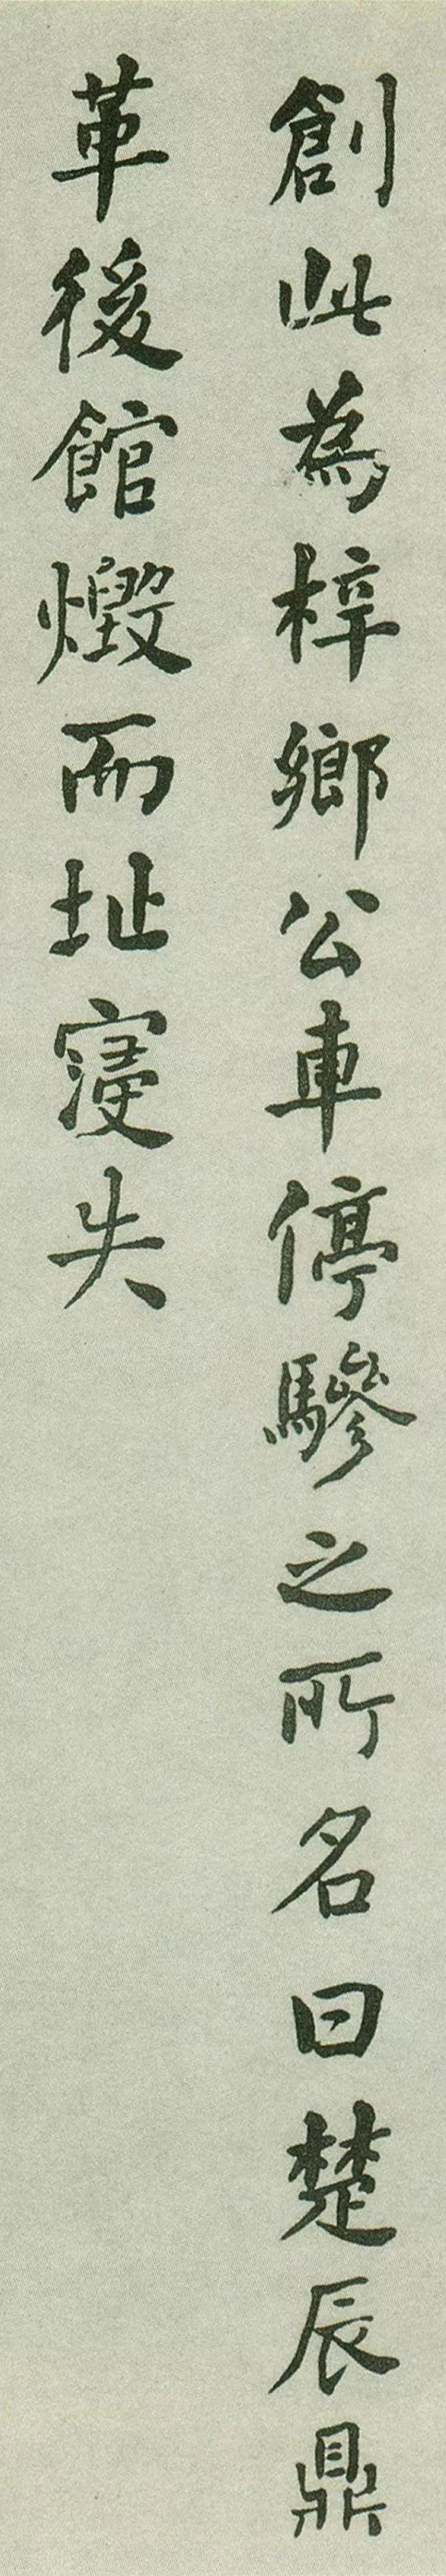 創此為梓鄉公車停驂之所名曰楚辰鼎
革後館燬而址寖失